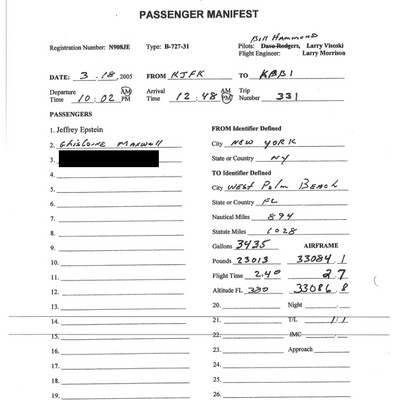 PASSENGER MANIFEST
Bill Hammond
Registration Number: N908JE Type: B-727-31 Pilots: Dave Rodgers, Larry Visoski
Flight Engineer: Larry Morrison
DATE: 3.18,2005 FROM KJFK TO KPBI
Departure Time 10:02 AM PM Arrival Time 12:48 AM PM Trip Number 331
PASSENGERS
1. Jeffrey Epstein FROM Identifier Defined
2. Ghislaine Maxwell City NEW YORK
3. State or Country NY
4. TO Identifier Defined
5. City WEST Palm BEACH
6. State or Country FL
7. Nautical Miles 894
8. Statute Miles 1028
9. Gallons 3435 AIRFRAME
10. Pounds 23013 33084.1
11. Flight Time 2.40 2.7
12. Altitude FL 330 33086.8
13. 20. Night
14. 21. T/L 1/1
15. 22. IMC
16. 23. Approach
17. 24.
18. 25.
19. 26.